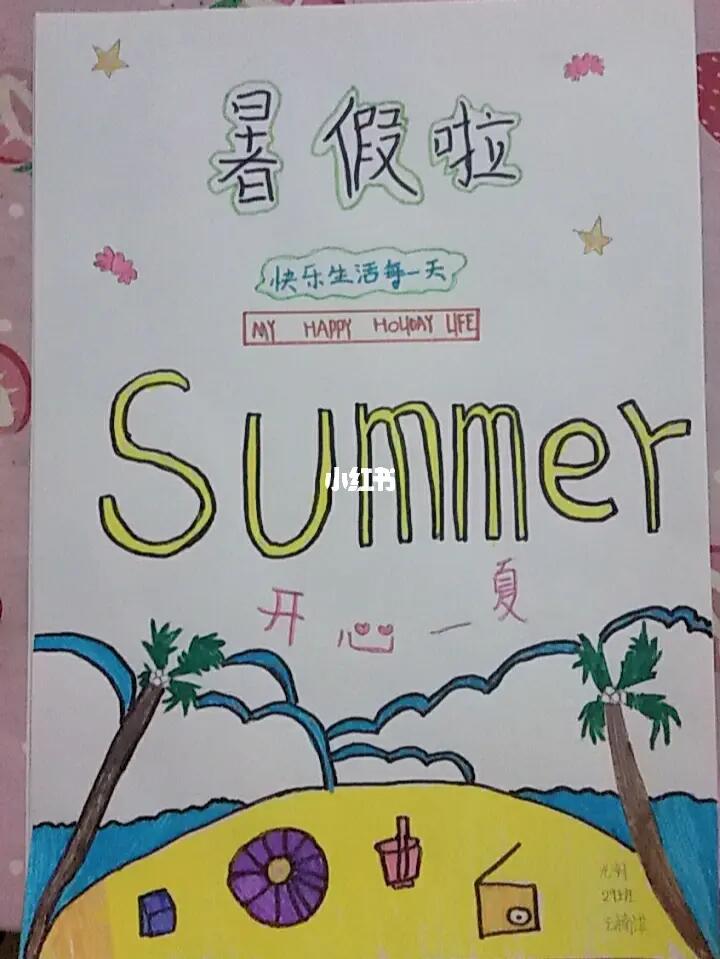 暑假啦
快乐生活每一天
MY HAPPY HOLIDAY LIFE
Summer
小红书
开心一夏